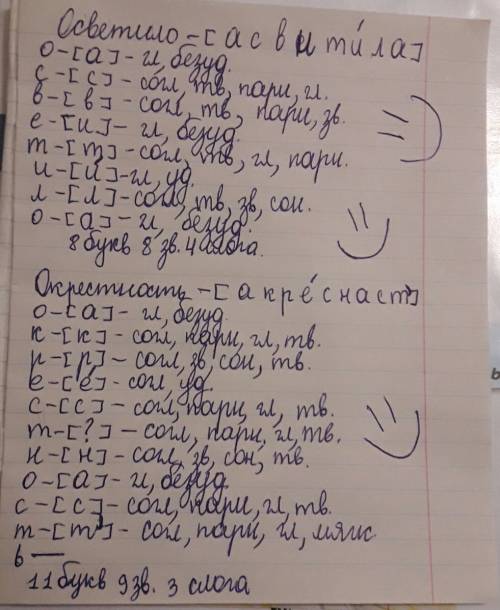 Осветило-[асвити́ла]
о-[а]-гл, безуд.
с-[с]-согл, тв, парн, гл.
в-[в]-согл, тв, парн, зв.
е-[и]-гл, безуд.
т-[т]-согл, тв, гл, парн.
и-[и́]-гл, уд.
л-[л]-согл, тв, зв, сон.
о-[а]-гл, безуд.
8 букв 8 зв. 4 слога.
Окрестность-[акре́снаст']
о-[а]-гл, безуд.
к-[к]-согл, парн, гл, тв.
р-[р]-согл, зв, сон, тв.
е-[е́]-согл, уд.
с-[с]-согл, парн, гл, тв.
т-[?]-согл, парн, гл, тв.
н-[н]-согл, зв, сон, тв.
о-[а]-гл, безуд.
с-[с]-согл, парн, гл, тв.
т-[т']-согл, парн, гл, мягк
ь —
11 букв 9 зв. 3 слога